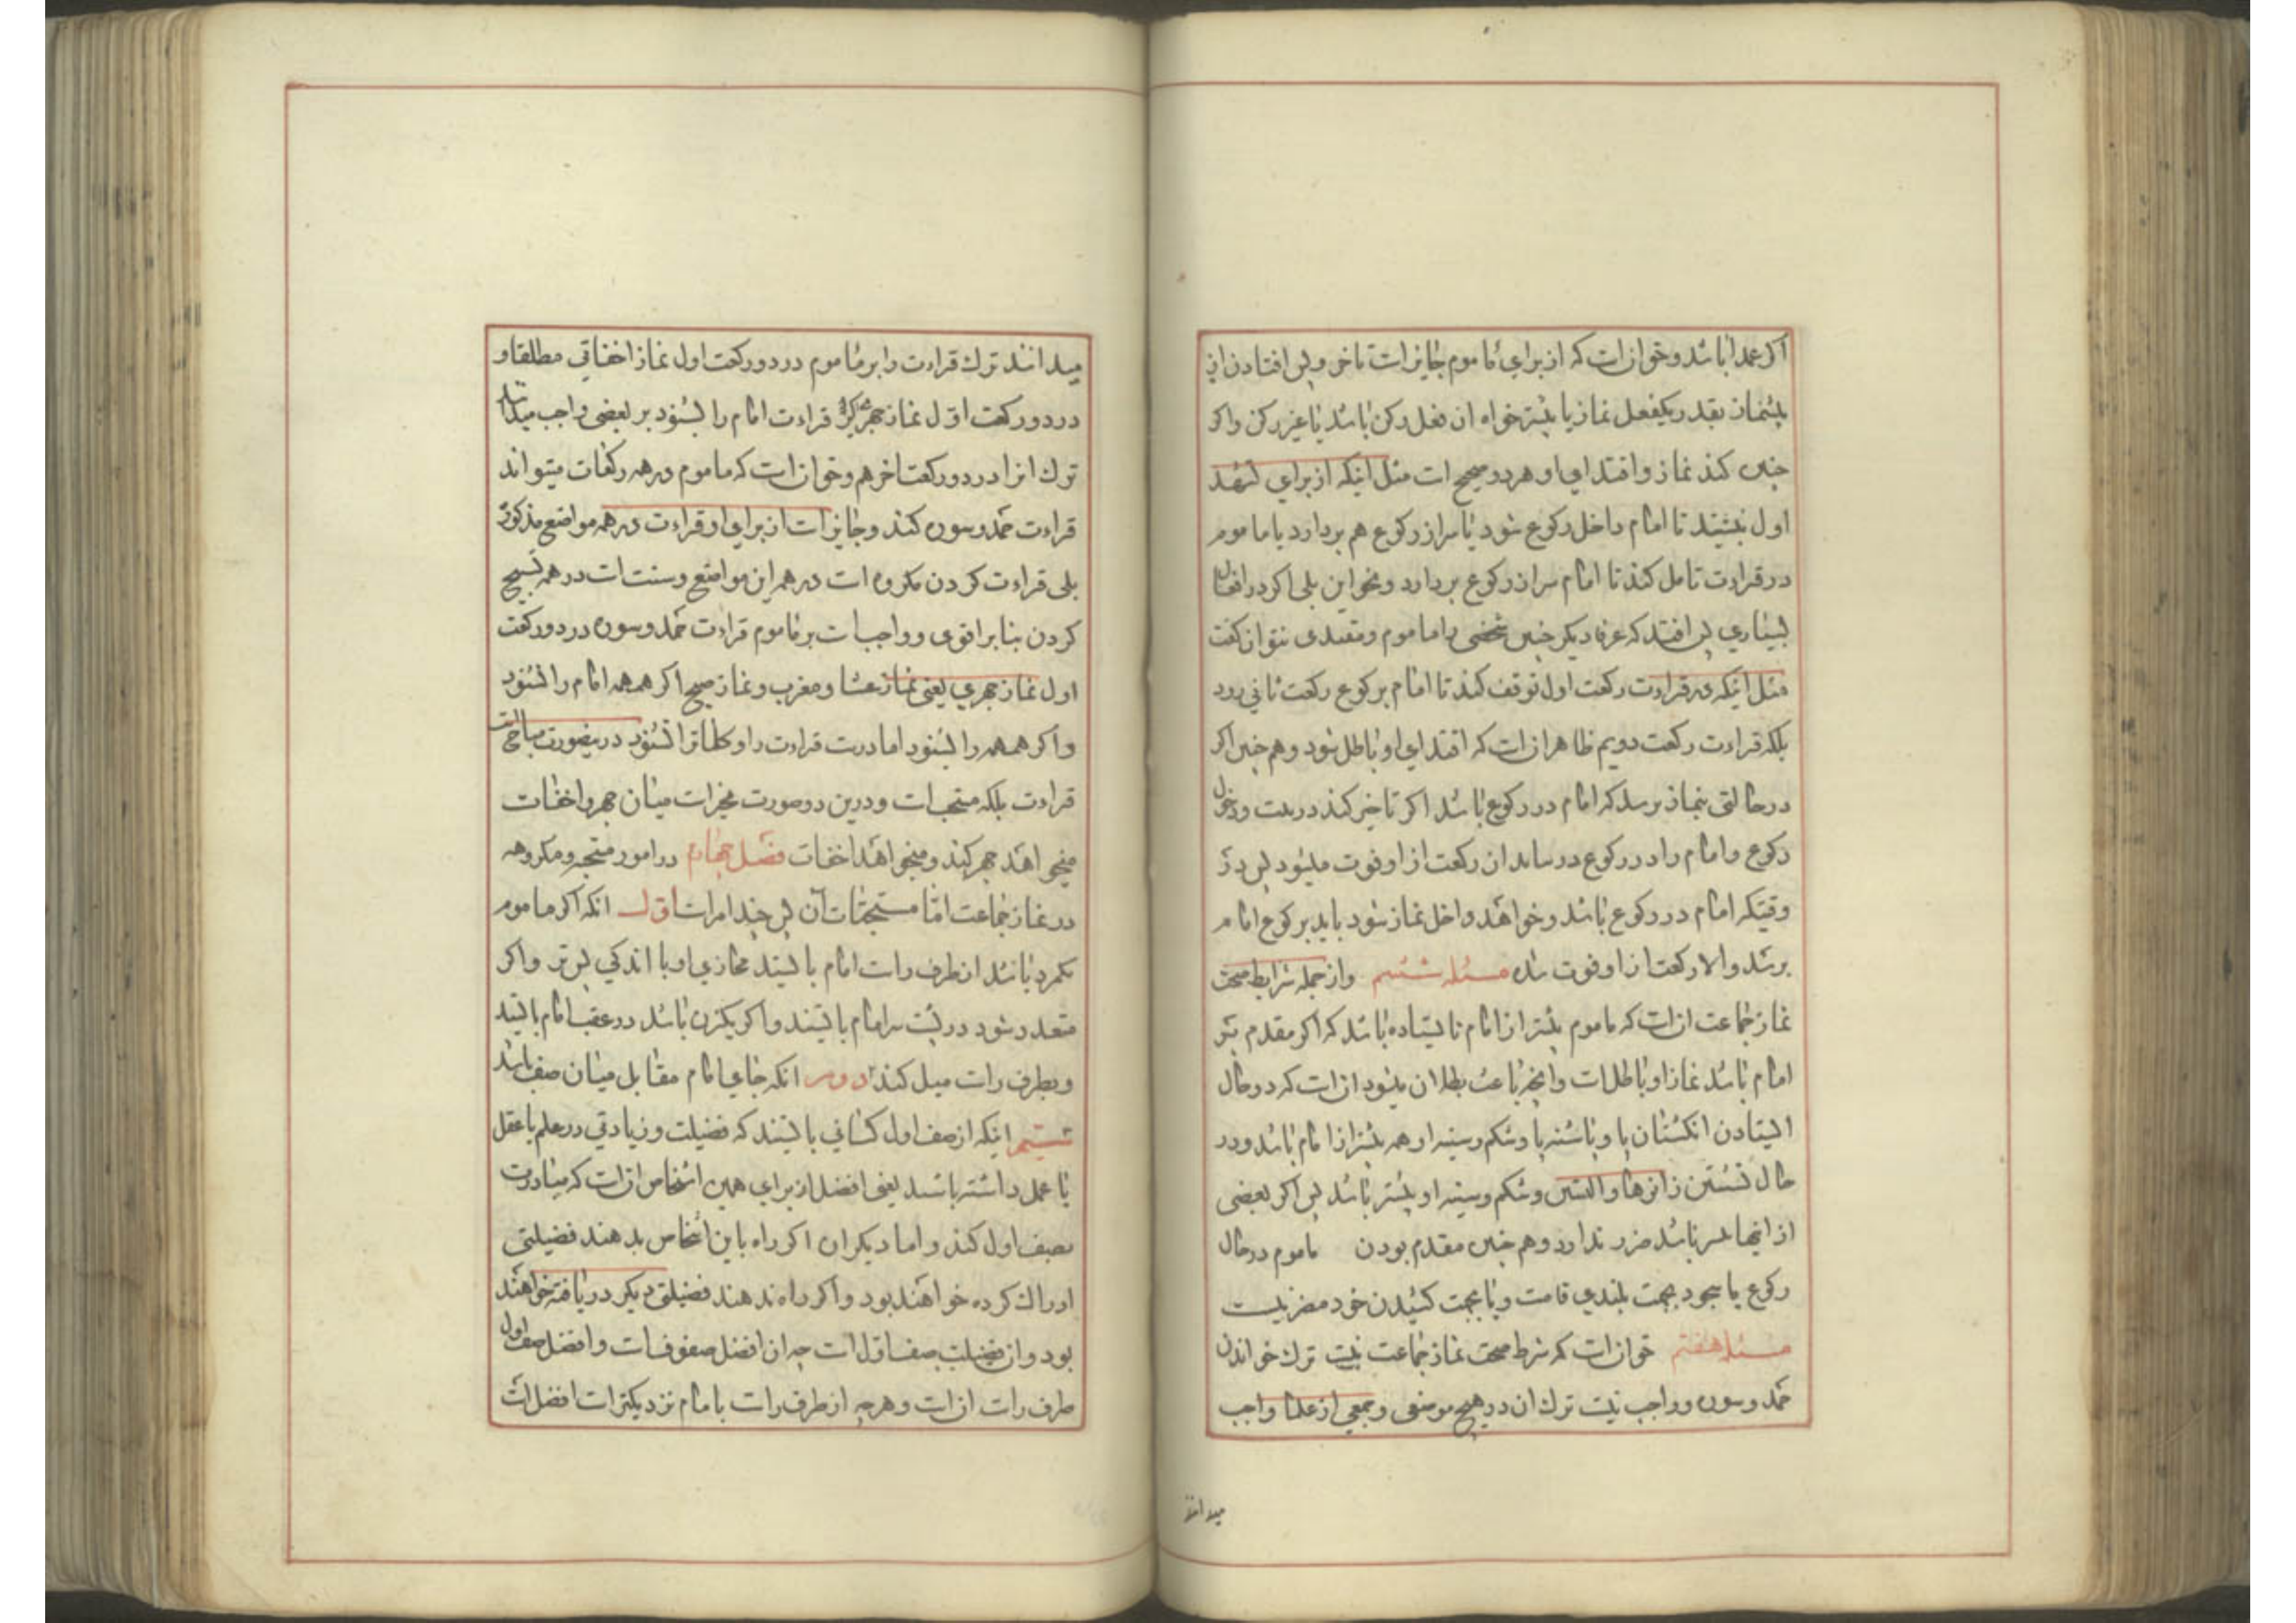 اکر عمدا باشد و خوازات که از برای ماموم جایزات تاخر و پس افتادن از
پیشنماز بقدر یکفعل نماز یا بیشتر خواه ان فعل رکن باشد یا غیر رکن و اکر
چنین کند نماز و اقتدای او هر دو صحیح ات مثل اینکه از برای تشهد
اول بنشیند تا امام داخل رکوع شود یا سر از رکوع هم بردارد یا ماموم
در قراءت تامل کند تا امام سر از رکوع بردارد و نحو این بلی اکر در افعال
بسیاری پس افتد که عرفا دیکر چنین شخصی را ماموم و مقتدی نتوان کفت
مثل اینکه در قراءت رکعت اول توقف کند تا امام برکوع رکعت ثانی رود
بلکه قراءت رکعت دویم ظاهر ازات که اقتدای او باطل شود و هم چنین اکر
در حالتی بنماز برسد که امام در رکوع باشد اکر تاخیر کند در نیت و دخول
رکوع و امام را در رکوع در نیابد ان رکعت از او فوت میشود پس در
وقتیکه امام در رکوع باشد و خواهد داخل نماز شود باید برکوع امام
برسد و الا رکعت از او فوت شده مسئله ششم و از جمله شرایط صحت
نماز جماعت ازات که ماموم پیشتر از امام نایستاده باشد که اکر مقدم بر
امام باشد نماز او باطلات و انچه باعث بطلان میشود ازات که در حال
ایستادن انکشتان پا و پاشنه پا و شکم و سینه او همه پیشتر از امام باشد و در
حال نشستن زانوها و الیتین و شکم و سینه او پیشتر باشد پس اکر بعضی
از اینها باشد ضرر ندارد و هم چنین مقدم بودن ماموم در حال
رکوع یا سجود بجهت بلندی قامت و یا بجهت کشیدن خود مضر نیست
مسئله هفتم خوازات که شرط صحت نماز جماعت نیت ترک خواندن
حمد و سوره و واجب نیت ترک ان در هیچ موضعی و جمعی از علما واجب
میدانند
میدانند ترک قراءت را بر ماموم در دو رکعت اول نماز اخفاتی مطلقا و
در دو رکعت اول نماز جهری که قراءت امام را بشنود بر بعضی واجب میدانند
ترک انرا در دو رکعت اخر هم و خوازات که ماموم در همه رکعات میتواند
قراءت حمد و سوره کند و جایزات از برای او قراءت در همه مواضع مذکوره
بلی قراءت کردن مکروه ات در همه این مواضع و سنت ات در همه تسبیح
کردن بنا بر اقوی و واجب ات بر ماموم قراءت حمد و سوره در دو رکعت
اول نماز جهری یعنی نماز عشا و مغرب و نماز صبح اکر همهمه امام را نشنود
و اکر همهمه را بشنود اما درت قراءت را و کلماترا نشنود در ینصورت مباحات
قراءت بلکه مستحب ات و درین دو صورت مخیرات میان جهر و اخفات
میخواهد جهر کند و میخواهد اخفات فصل چهارم در امور مستحبه و مکروهه
در نماز جماعت اما مستحبات آن پس چند امرات اول انکه اکر ماموم
یکمرد باشد از طرف رات امام بایستد محاذی او یا اندکی پس تر و اکر
متعدد شود در پشت سر امام بایستند و اکر یکزن باشد در عقب امام بایستد
و بطرف رات میل کند دویم انکه جای امام مقابل میان صف باشد
سیم اینکه از صف اول کسانی بایستند که فضیلت و زیادتی در علم یا عقل
یا عمل داشته باشند یعنی افضل از برای همین اشخاص ازات که مبادرت
بصف اول کنند و اما دیکران اکر راه باین اشخاص بدهند فضیلتی
ادراک کرده خواهند بود و اکر راه ندهند فضیلتی دیکر دریافته خواهند
بود و ان فضیلت صف اول ات چه ان افضل صفوف ات و افضل صف اول
طرف رات ازات و هر چه از طرف رات بامام نزدیکترات افضل ات